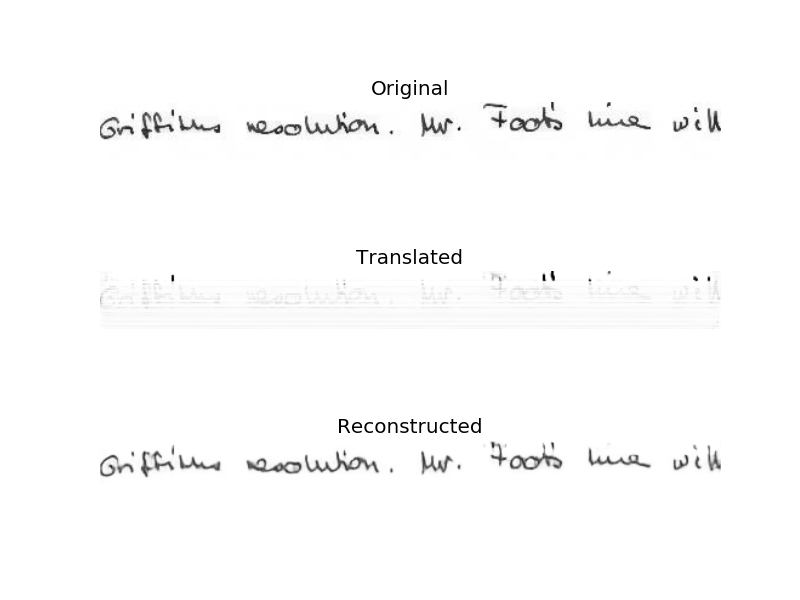 Original
Griffiths resolution. Mr. Foot's line will
Translated
Griffiths resolution. Mr. Foot's line will
Reconstructed
Griffiths resolution. Mr. Foot's line will